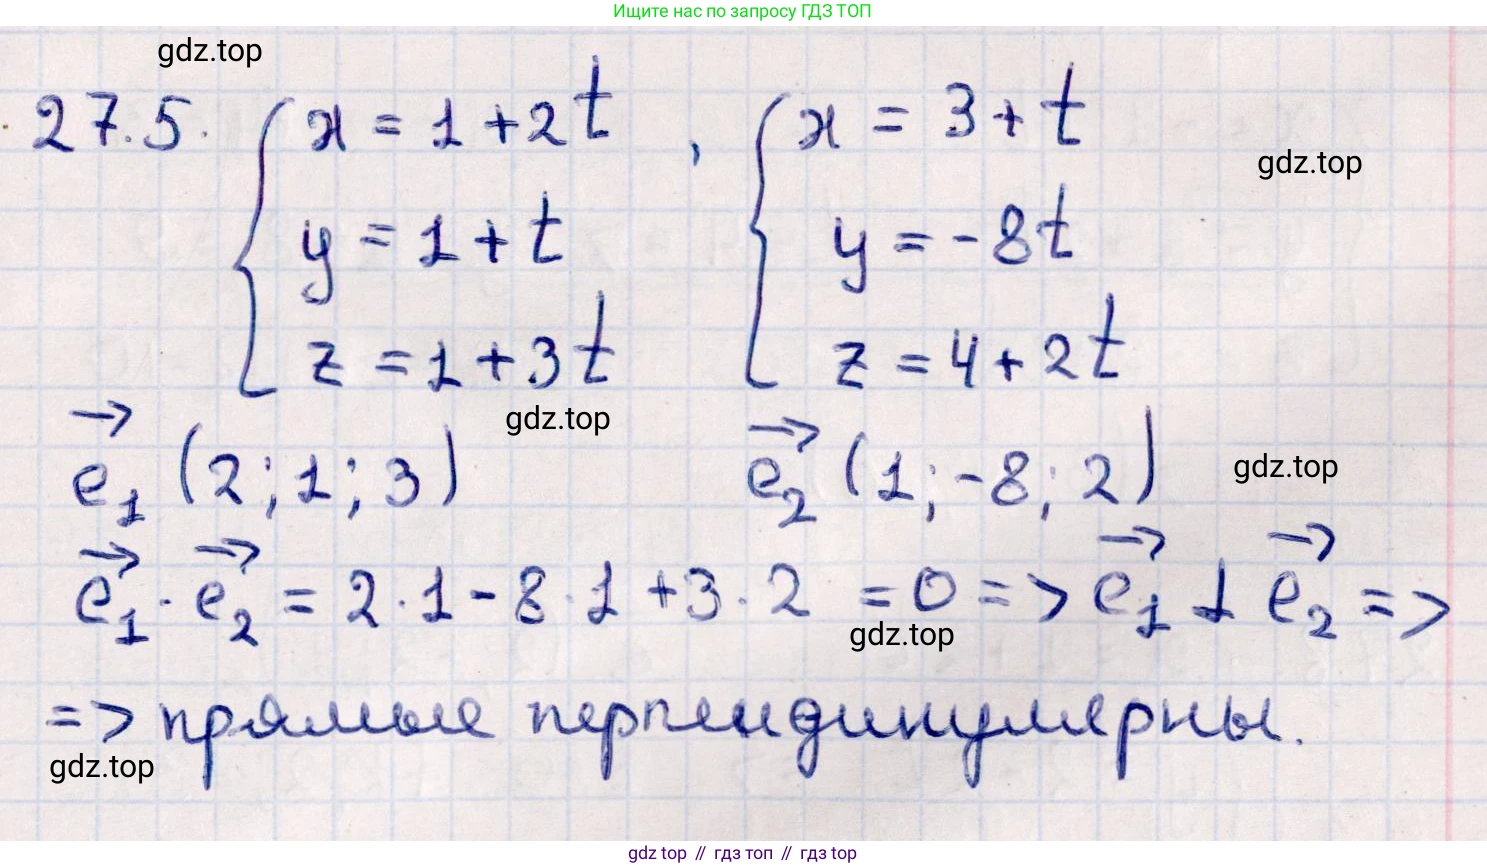 Ищите нас по запросу ГДЗ ТОП
gdz.top
27.5. { x = 1 + 2t , { x = 3 + t
gdz.top
y = 1 + t y = -8t
z = 1 + 3t z = 4 + 2t
gdz.top
e₁ (2; 1; 3) e₂ (1; -8; 2)
gdz.top
e₁ · e₂ = 2·1 - 8·1 + 3·2 = 0 => e₁ ⊥ e₂ =>
gdz.top
=> прямые перпендикулярны.
gdz.top
gdz top // гдз топ // гдз top